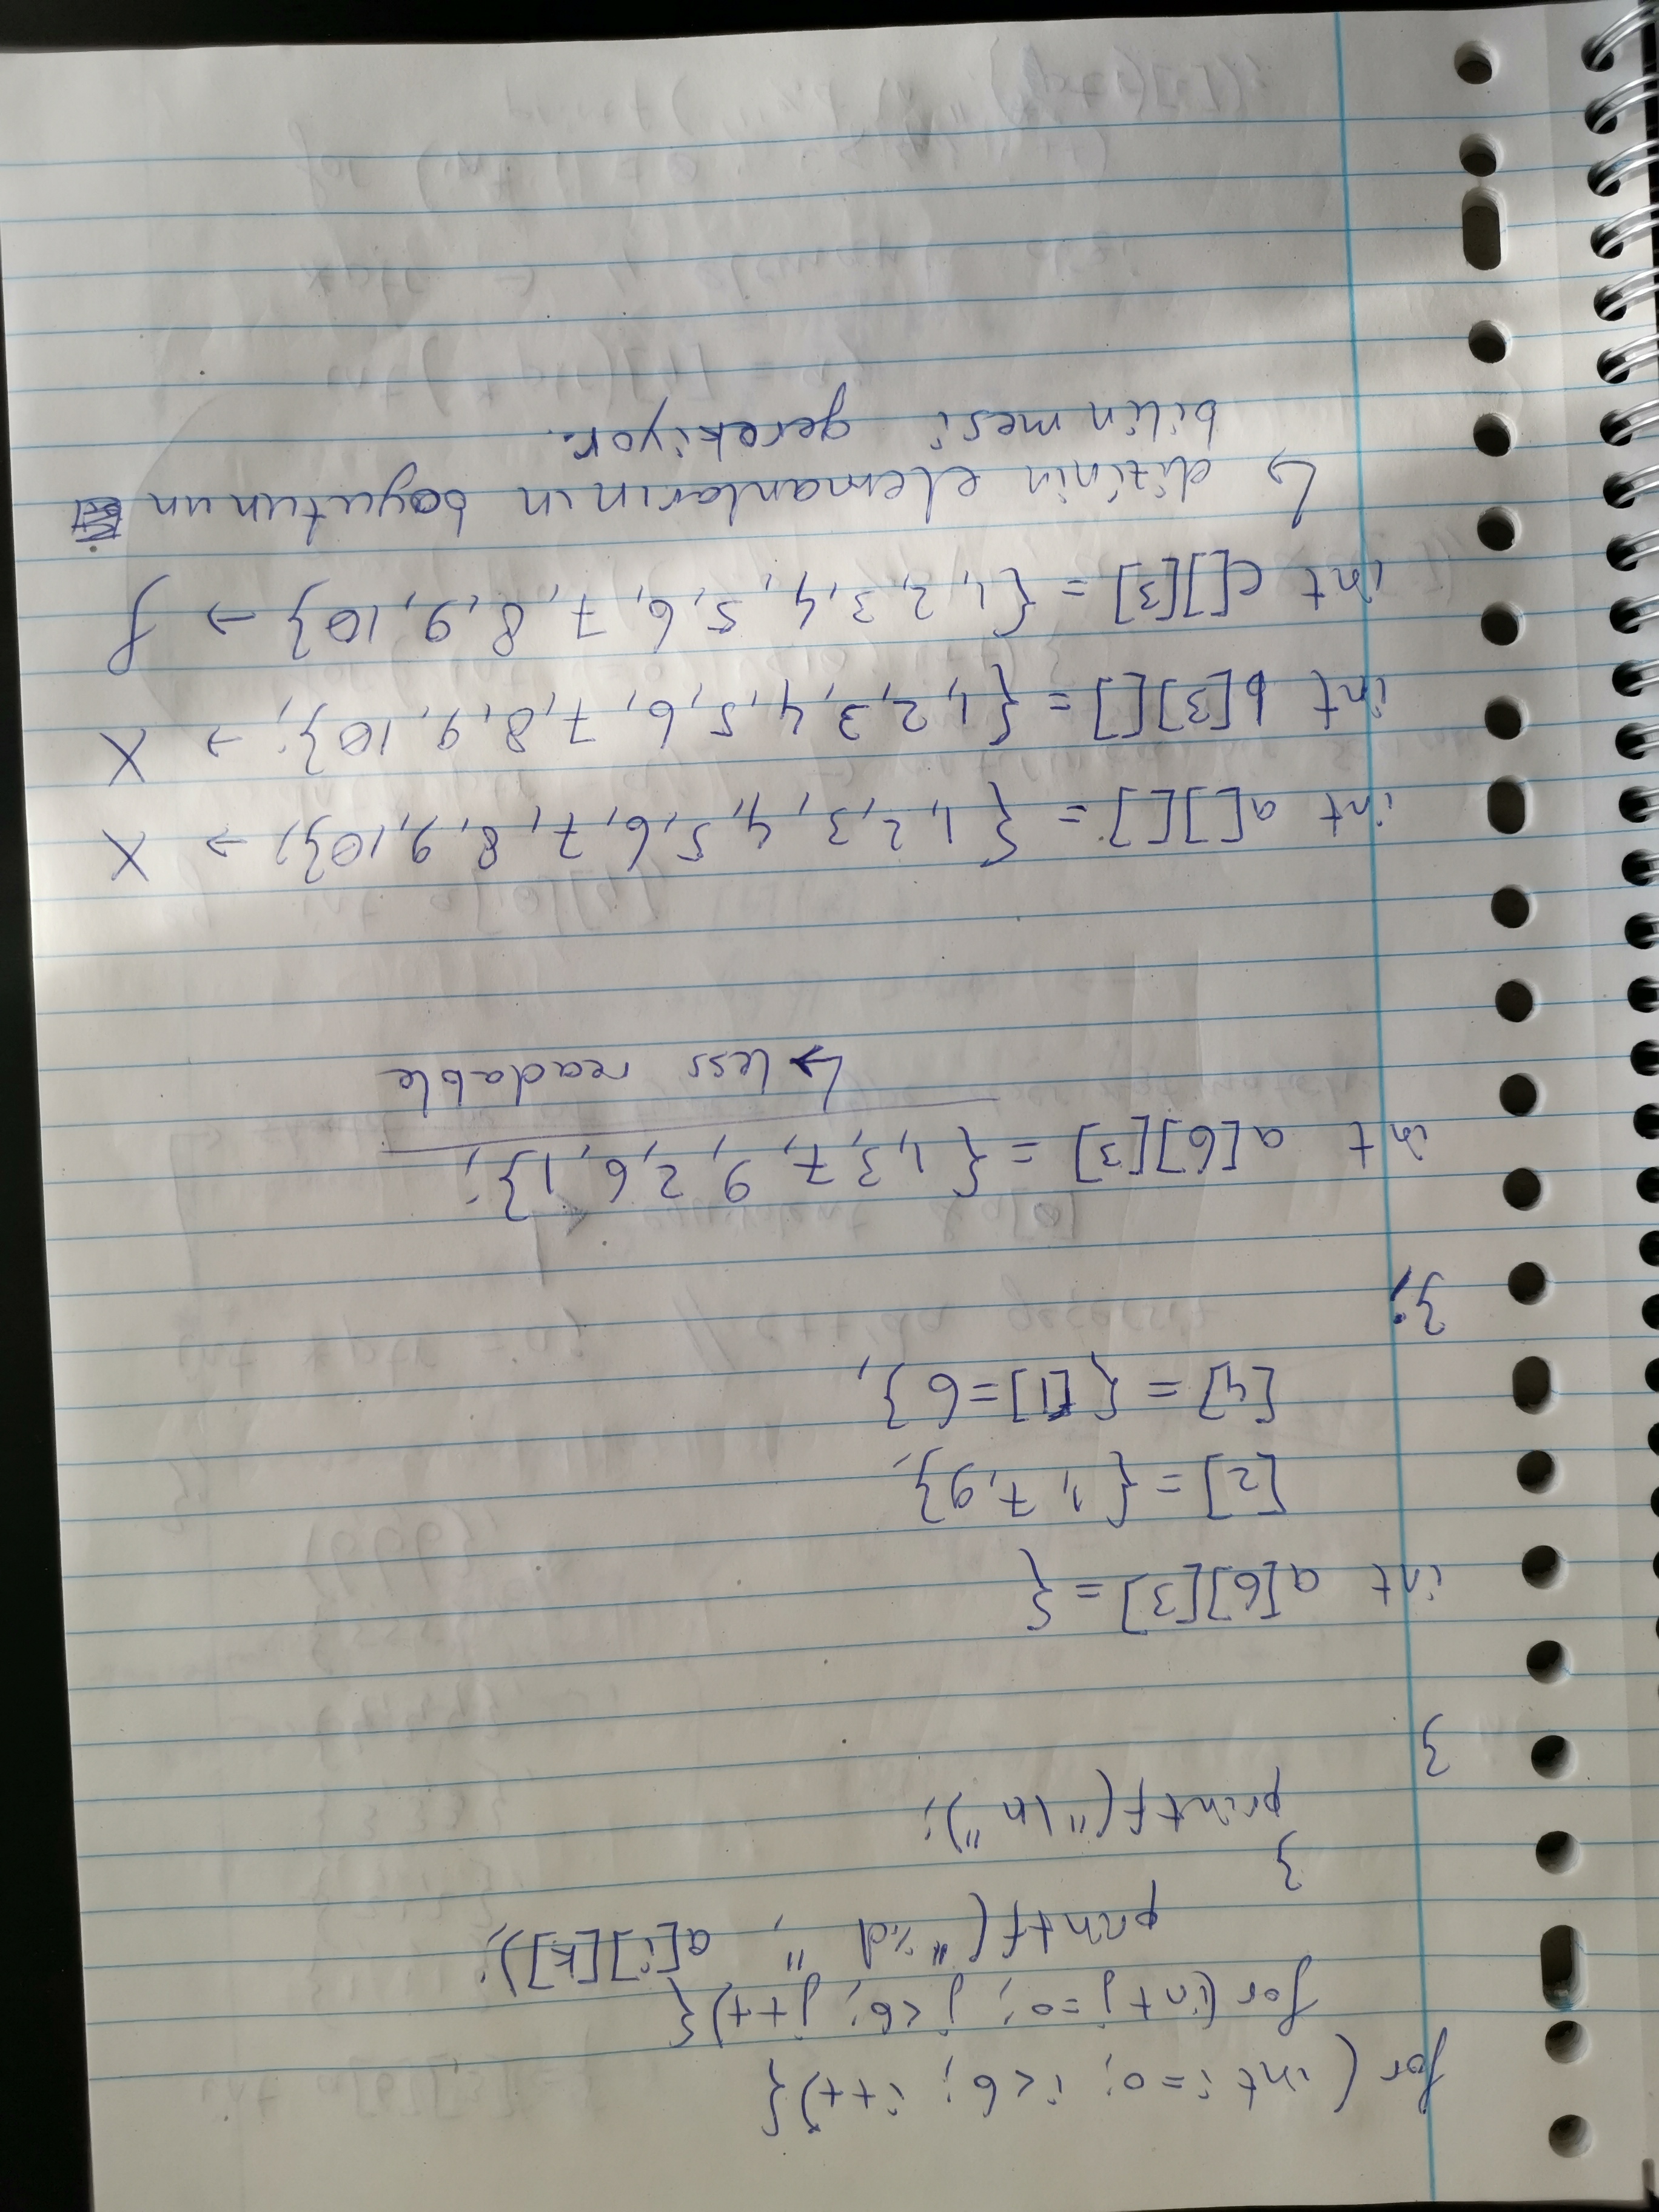 for ( int i=0; i<6; i++){
for(int j=0; j<6; j++){
printf("%d ", a[i][k]);
}
printf("\n");
}
int a[6][3] = {
[2] = {1, 7, 9},
[4] = {[1]=6},
};
int a[6][3] = {1, 3, 7, 9, 2, 6, 1};
↳ less readable
int a[][] = {1, 2, 3, 4, 5, 6, 7, 8, 9, 10}; → X
int b[3][] = {1, 2, 3, 4, 5, 6, 7, 8, 9, 10}; → X
int c[][3] = {1, 2, 3, 4, 5, 6, 7, 8, 9, 10} →
↳ dizinin elemanlarının boyutunun
bilinmesi gerekiyor.